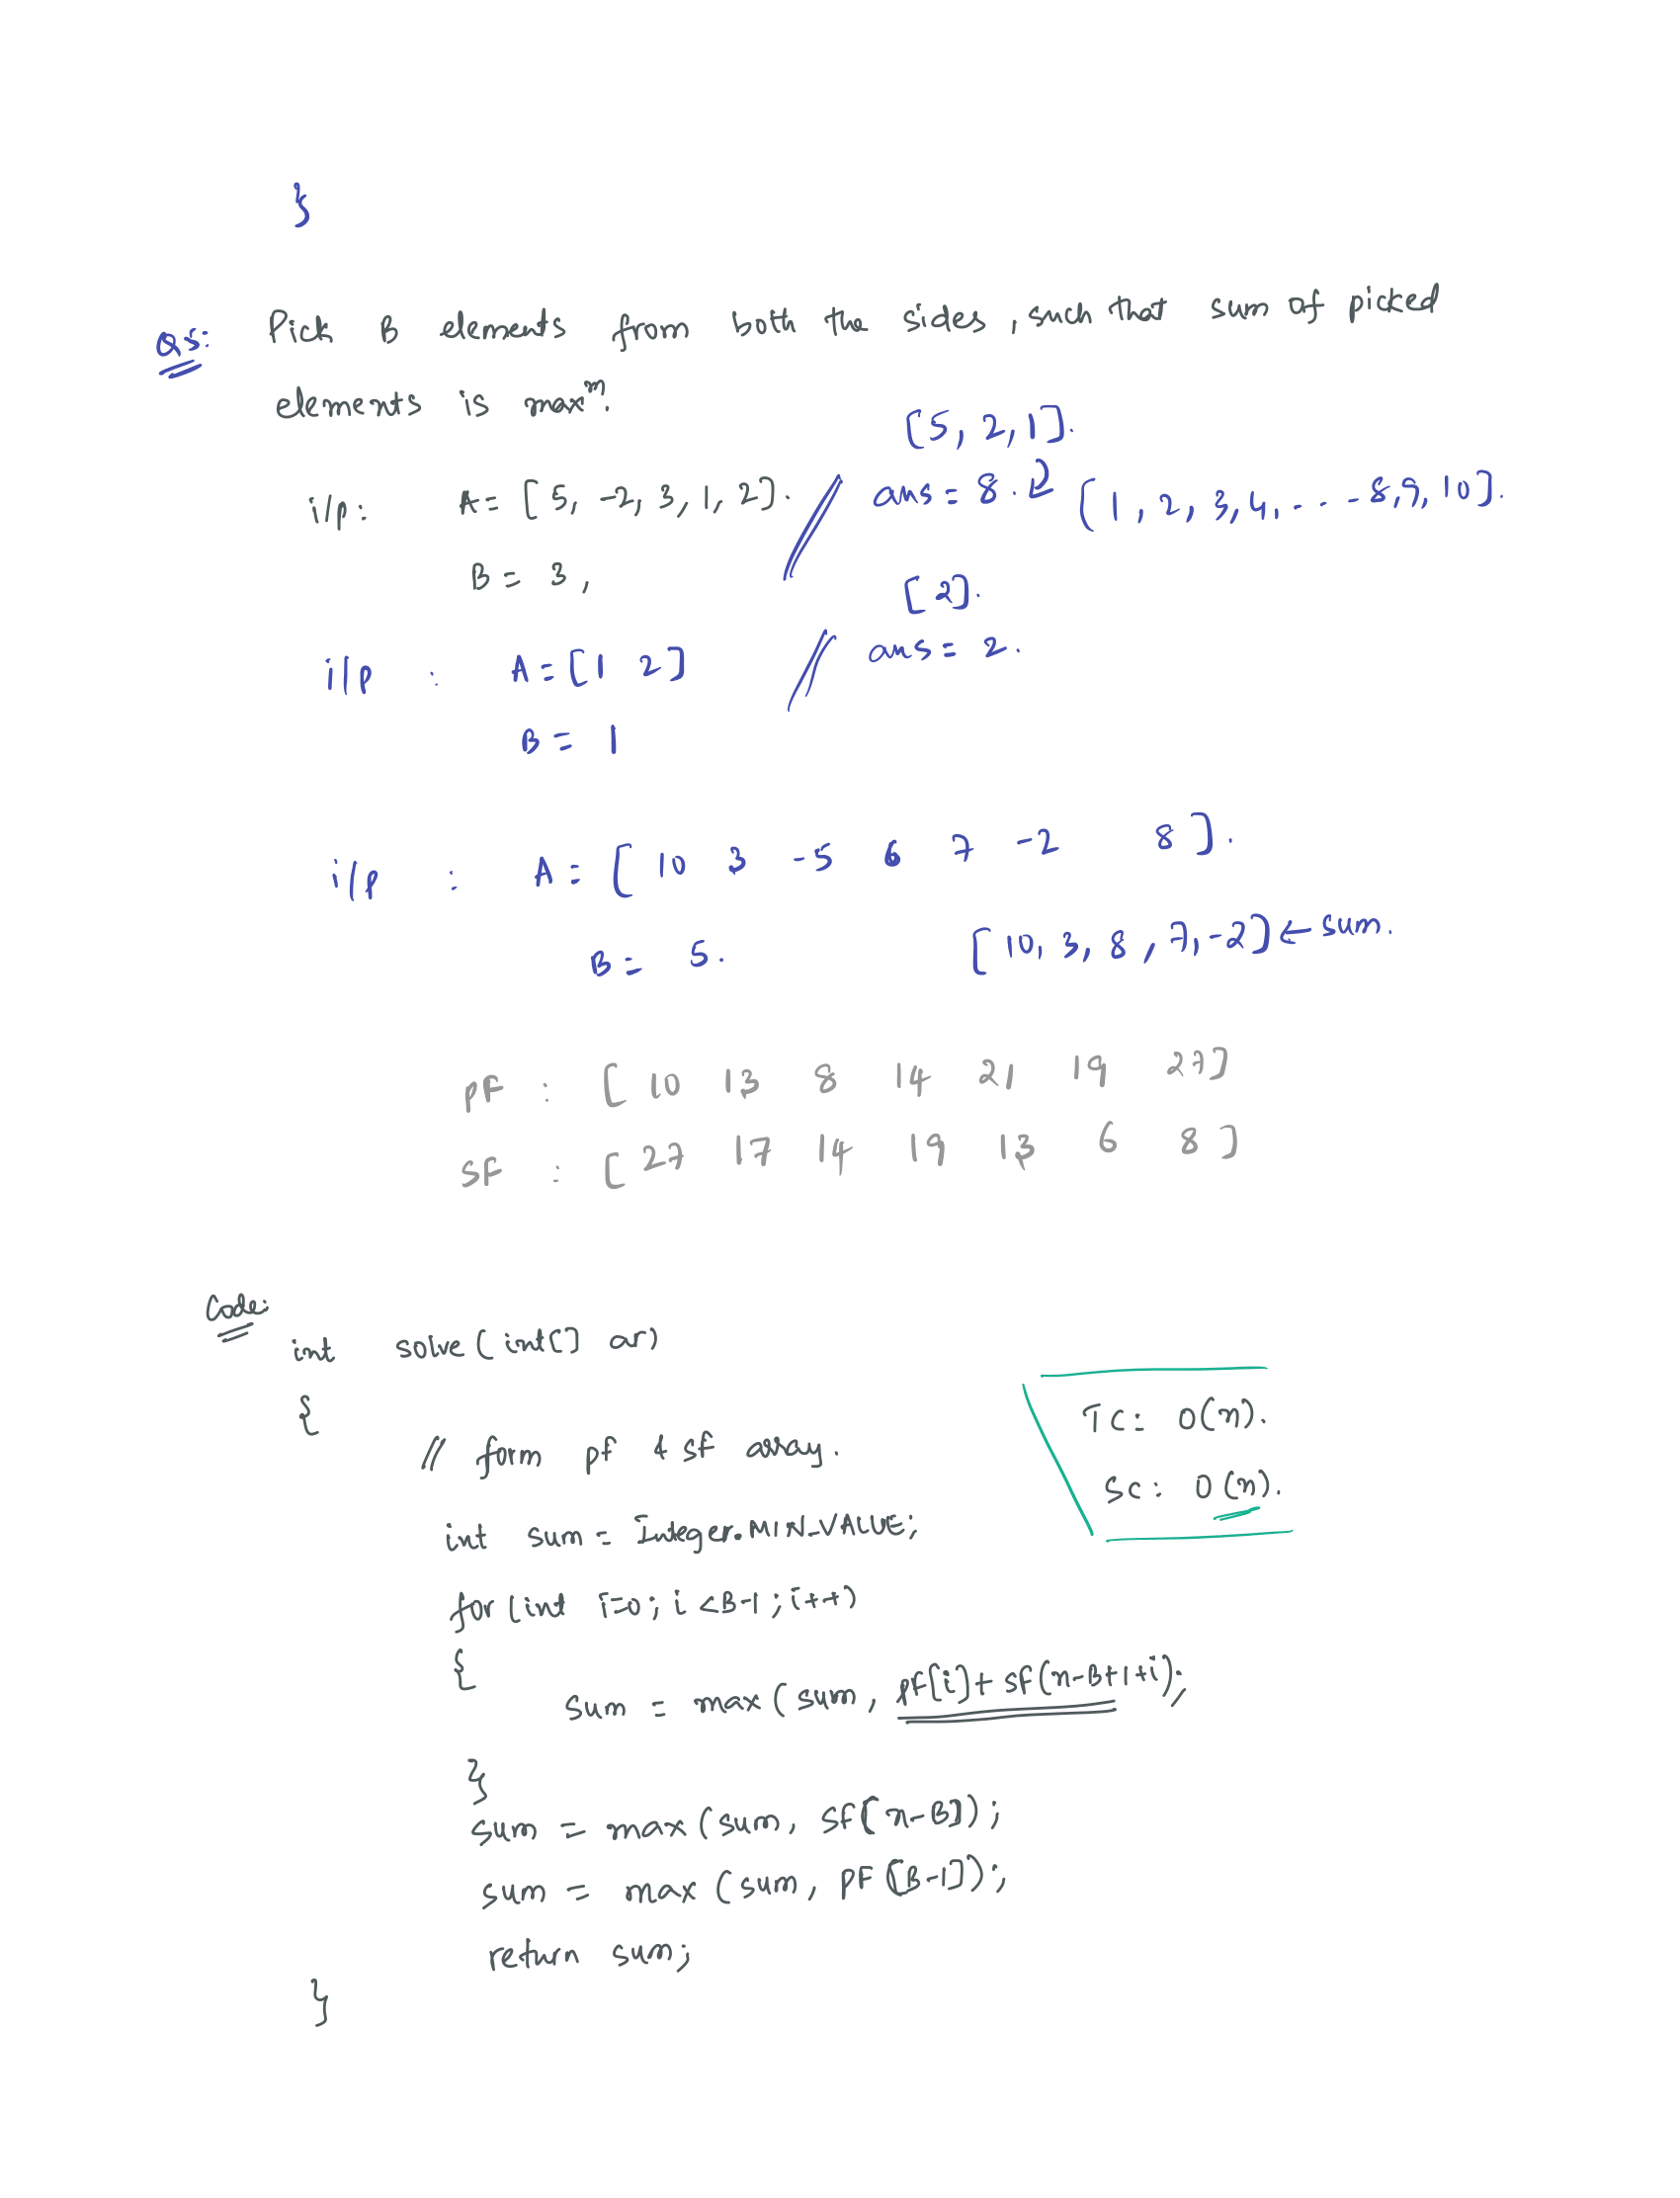 }
Q5: Pick B elements from both the sides, such that sum of picked
elements is maxᵐ.
[5, 2, 1].
i/p: A = [5, -2, 3, 1, 2]. // ans = 8. [1, 2, 3, 4, . . - 8, 9, 10].
B = 3,
[2].
i/p : A = [1 2] // ans = 2.
B = 1
i/p : A = [10 3 -5 6 7 -2 8].
B = 5. [10, 3, 8, 7, -2] ← sum.
PF : [10 13 8 14 21 19 27]
SF : [27 17 14 19 13 6 8]
Code:
int solve(int[] ar)
{
TC: O(n).
// form pf & sf array.
SC: O(n).
int sum = Integer.MIN_VALUE;
for(int i=0; i<B-1; i++)
{
sum = max(sum, pf[i] + sf(n-B+1+i);
}
sum = max(sum, sf[n-B]);
sum = max(sum, PF[B-1]);
return sum;
}